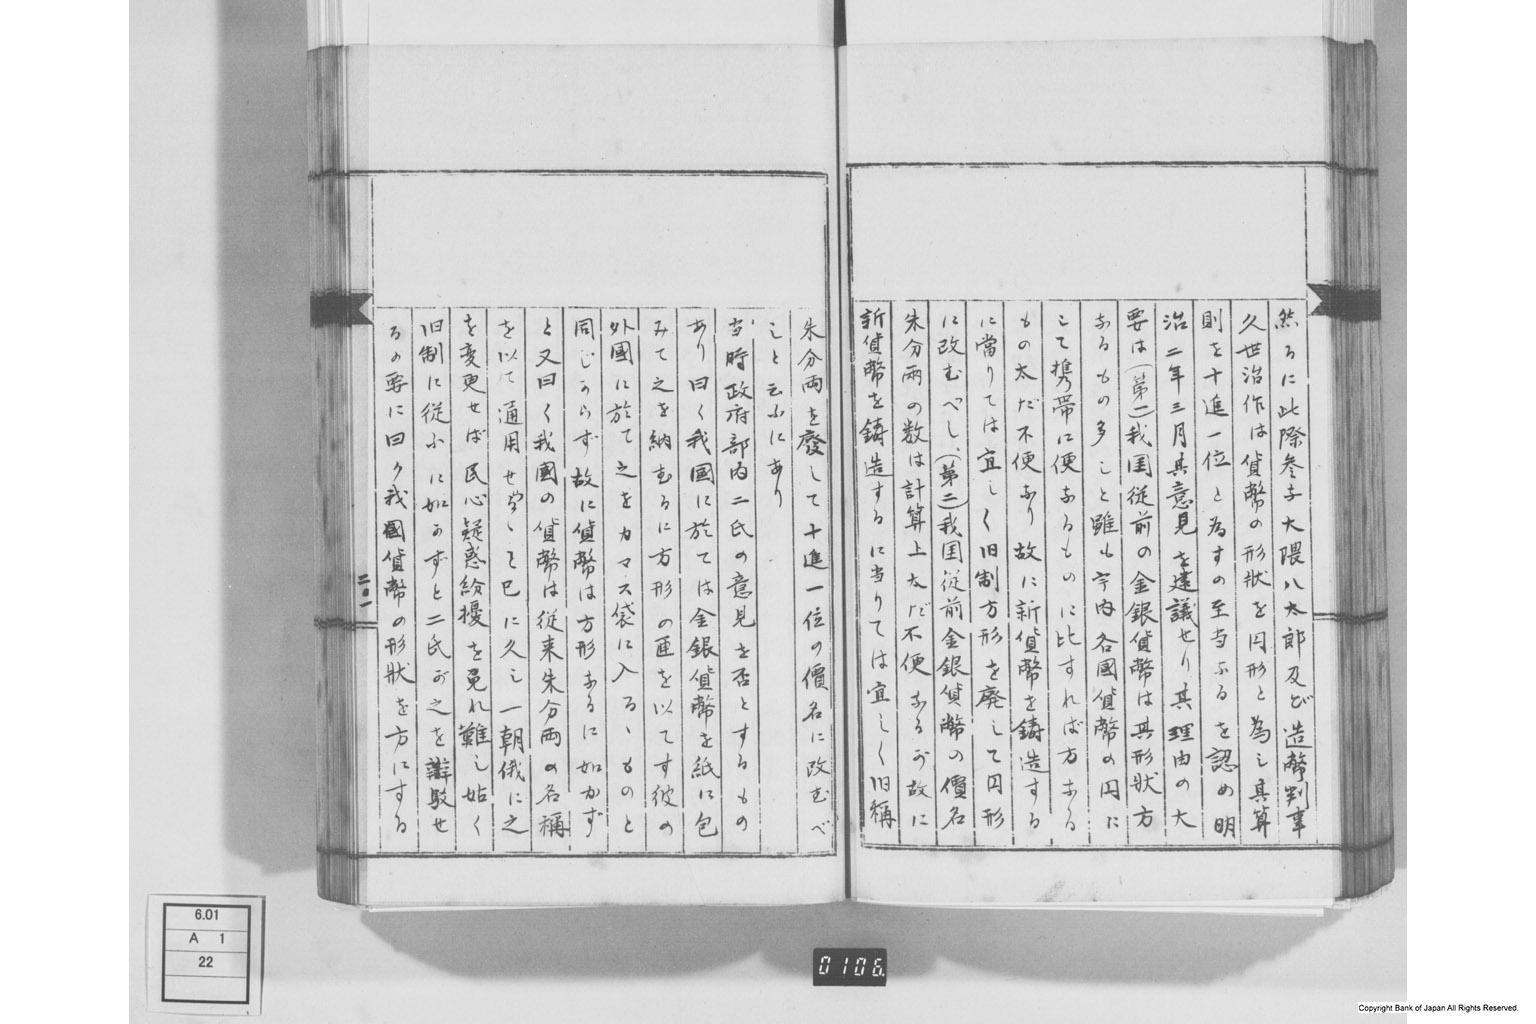 然るに此際参与大隈八太郎及び造幣判事
久世治作は貨幣の形状を円形と為し其算
則を十進一位と為すの至当なるを認め明
治二年三月其意見を建議せり其理由の大
要は(第一)我国従前の金銀貨幣は其形状方
なるもの多しと雖も宇内各国貨幣の円に
して携帯に便なるものに比すれば方なる
もの太だ不便なり故に新貨幣を鋳造する
に當りては宜しく旧制方形を廃して円形
に改むべし、(第二)我国従前金銀貨幣の價名
朱分両の数は計算上太だ不便なるが故に
新貨幣を鋳造するに当りては宜しく旧稱
朱分両を廢して十進一位の價名に改むべ
しと云ふにあり
当時政府部内二氏の意見を否とするもの
あり曰く我國に於ては金銀貨幣を紙に包
みて之を納むるに方形の匣を以てす彼の
外國に於て之をカマス袋に入るゝものと
同じからず故に貨幣は方形なるに如かず
と又曰く我國の貨幣は従来朱分両の名稱
を以て通用せ
しむること已に久し一朝俄に之
を変更せば民心疑惑紛擾を免れ難し姑く
旧制に従ふに如かずと二氏が之を辯駁せ
るの要に曰く我國貨幣の形状を方にする
二〇一
6.01
A 1
22
0106
Copyright Bank of Japan All Rights Reserved.